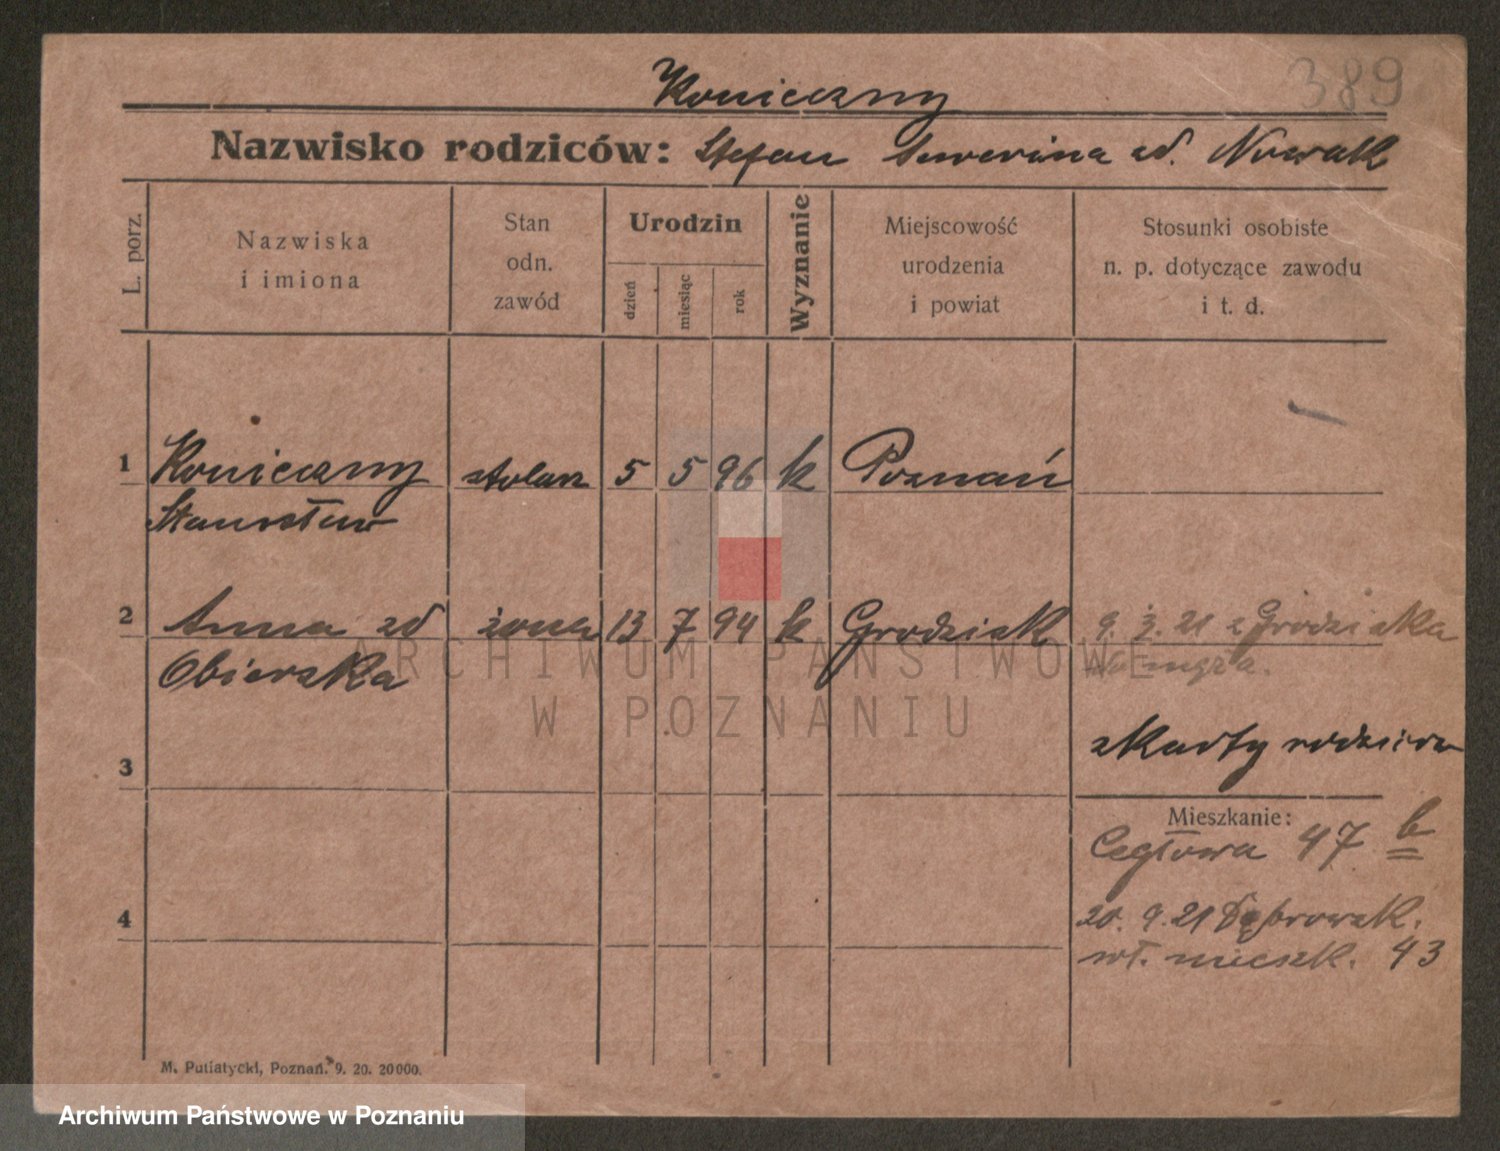 389
Konieczny
Nazwisko rodziców: Stefan Seweryna zd. Nowak
L. porz.
Nazwiska
i imiona
Stan
odn.
zawód
Urodzin
dzień
miesiąc
rok
Wyznanie
Miejscowość
urodzenia
i powiat
Stosunki osobiste
n. p. dotyczące zawodu
i t. d.
1 Konieczny stolarz 5 5 96 k Poznań
Stanisław
2 Anna zd żona 13 7 94 k Grodzisk 9. 3. 21 z Grodziska
Obierska
do męża.
ARCHIWUM PAŃSTWOWE
W POZNANIU
z karty rodziców
3
Mieszkanie:
Cegłowa 47 b
4
20. 9. 21 Dąbrowsk.
wł. mieszk. 43
M. Putiatycki, Poznań. 9. 20. 20000.
Archiwum Państwowe w Poznaniu